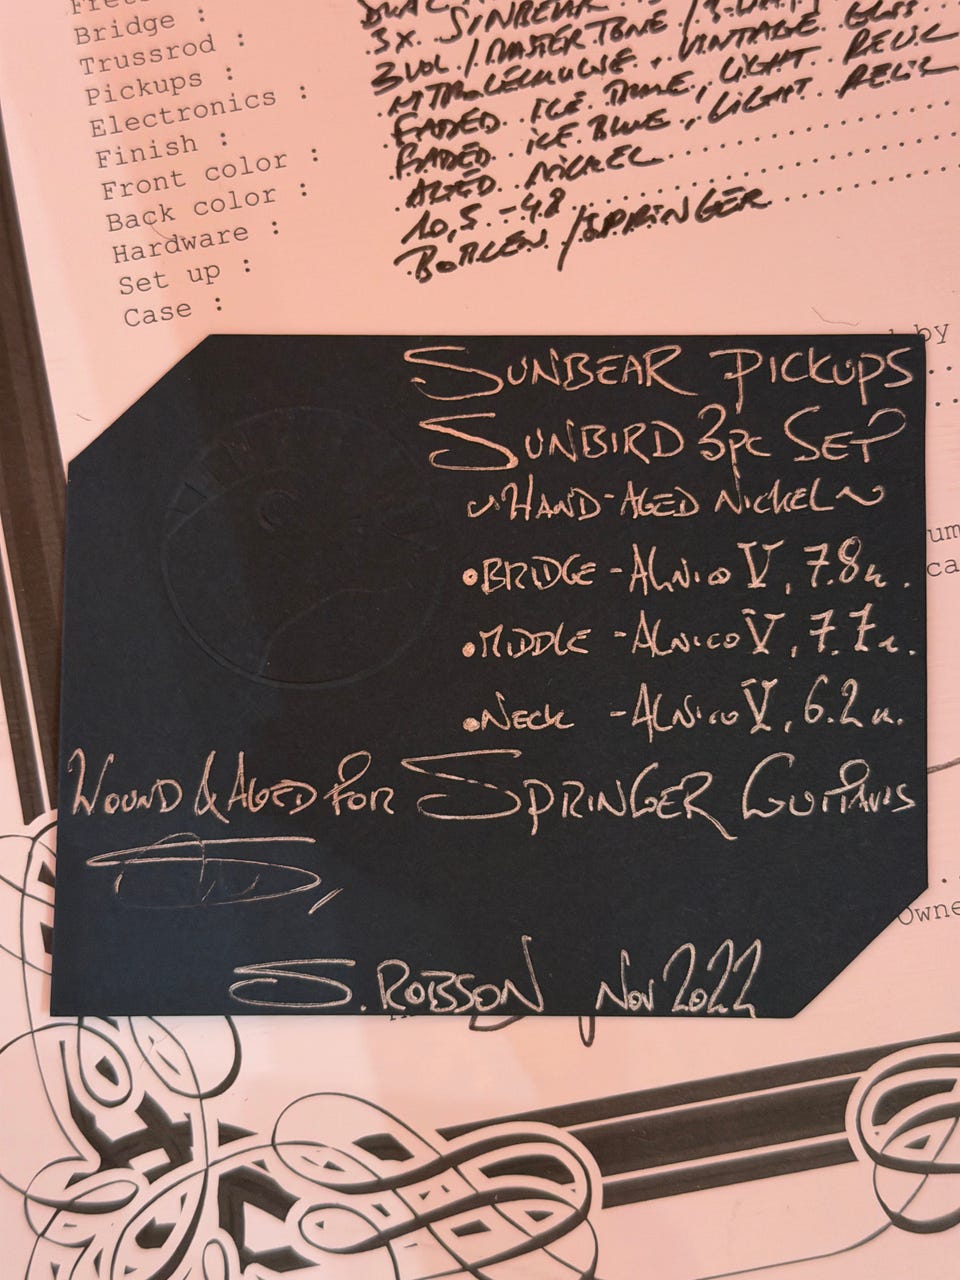 Bridge :
Trussrod :
Pickups :
Electronics :
Finish :
Front color :
Back color :
Hardware :
Set up :
Case :
3X SUNBEAR
3 VOL / MASTER TONE /
NITROCELLULOSE, VINTAGE GLOSS
FADED ICE BLUE, LIGHT RELIC
FADED ICE BLUE, LIGHT RELIC
AGED NICKEL
10,5 - 48
BOTLEN / SPRINGER
by
SUNBEAR PICKUPS
SUNBIRD 3pc SET
~HAND-AGED NICKEL~
•BRIDGE - ALNICO V, 7.8k.
•MIDDLE - ALNICO V, 7.7k.
•NECK - ALNICO V, 6.2k.
WOUND & AGED FOR SPRINGER GUITARS
S. ROBSON NOV 2022